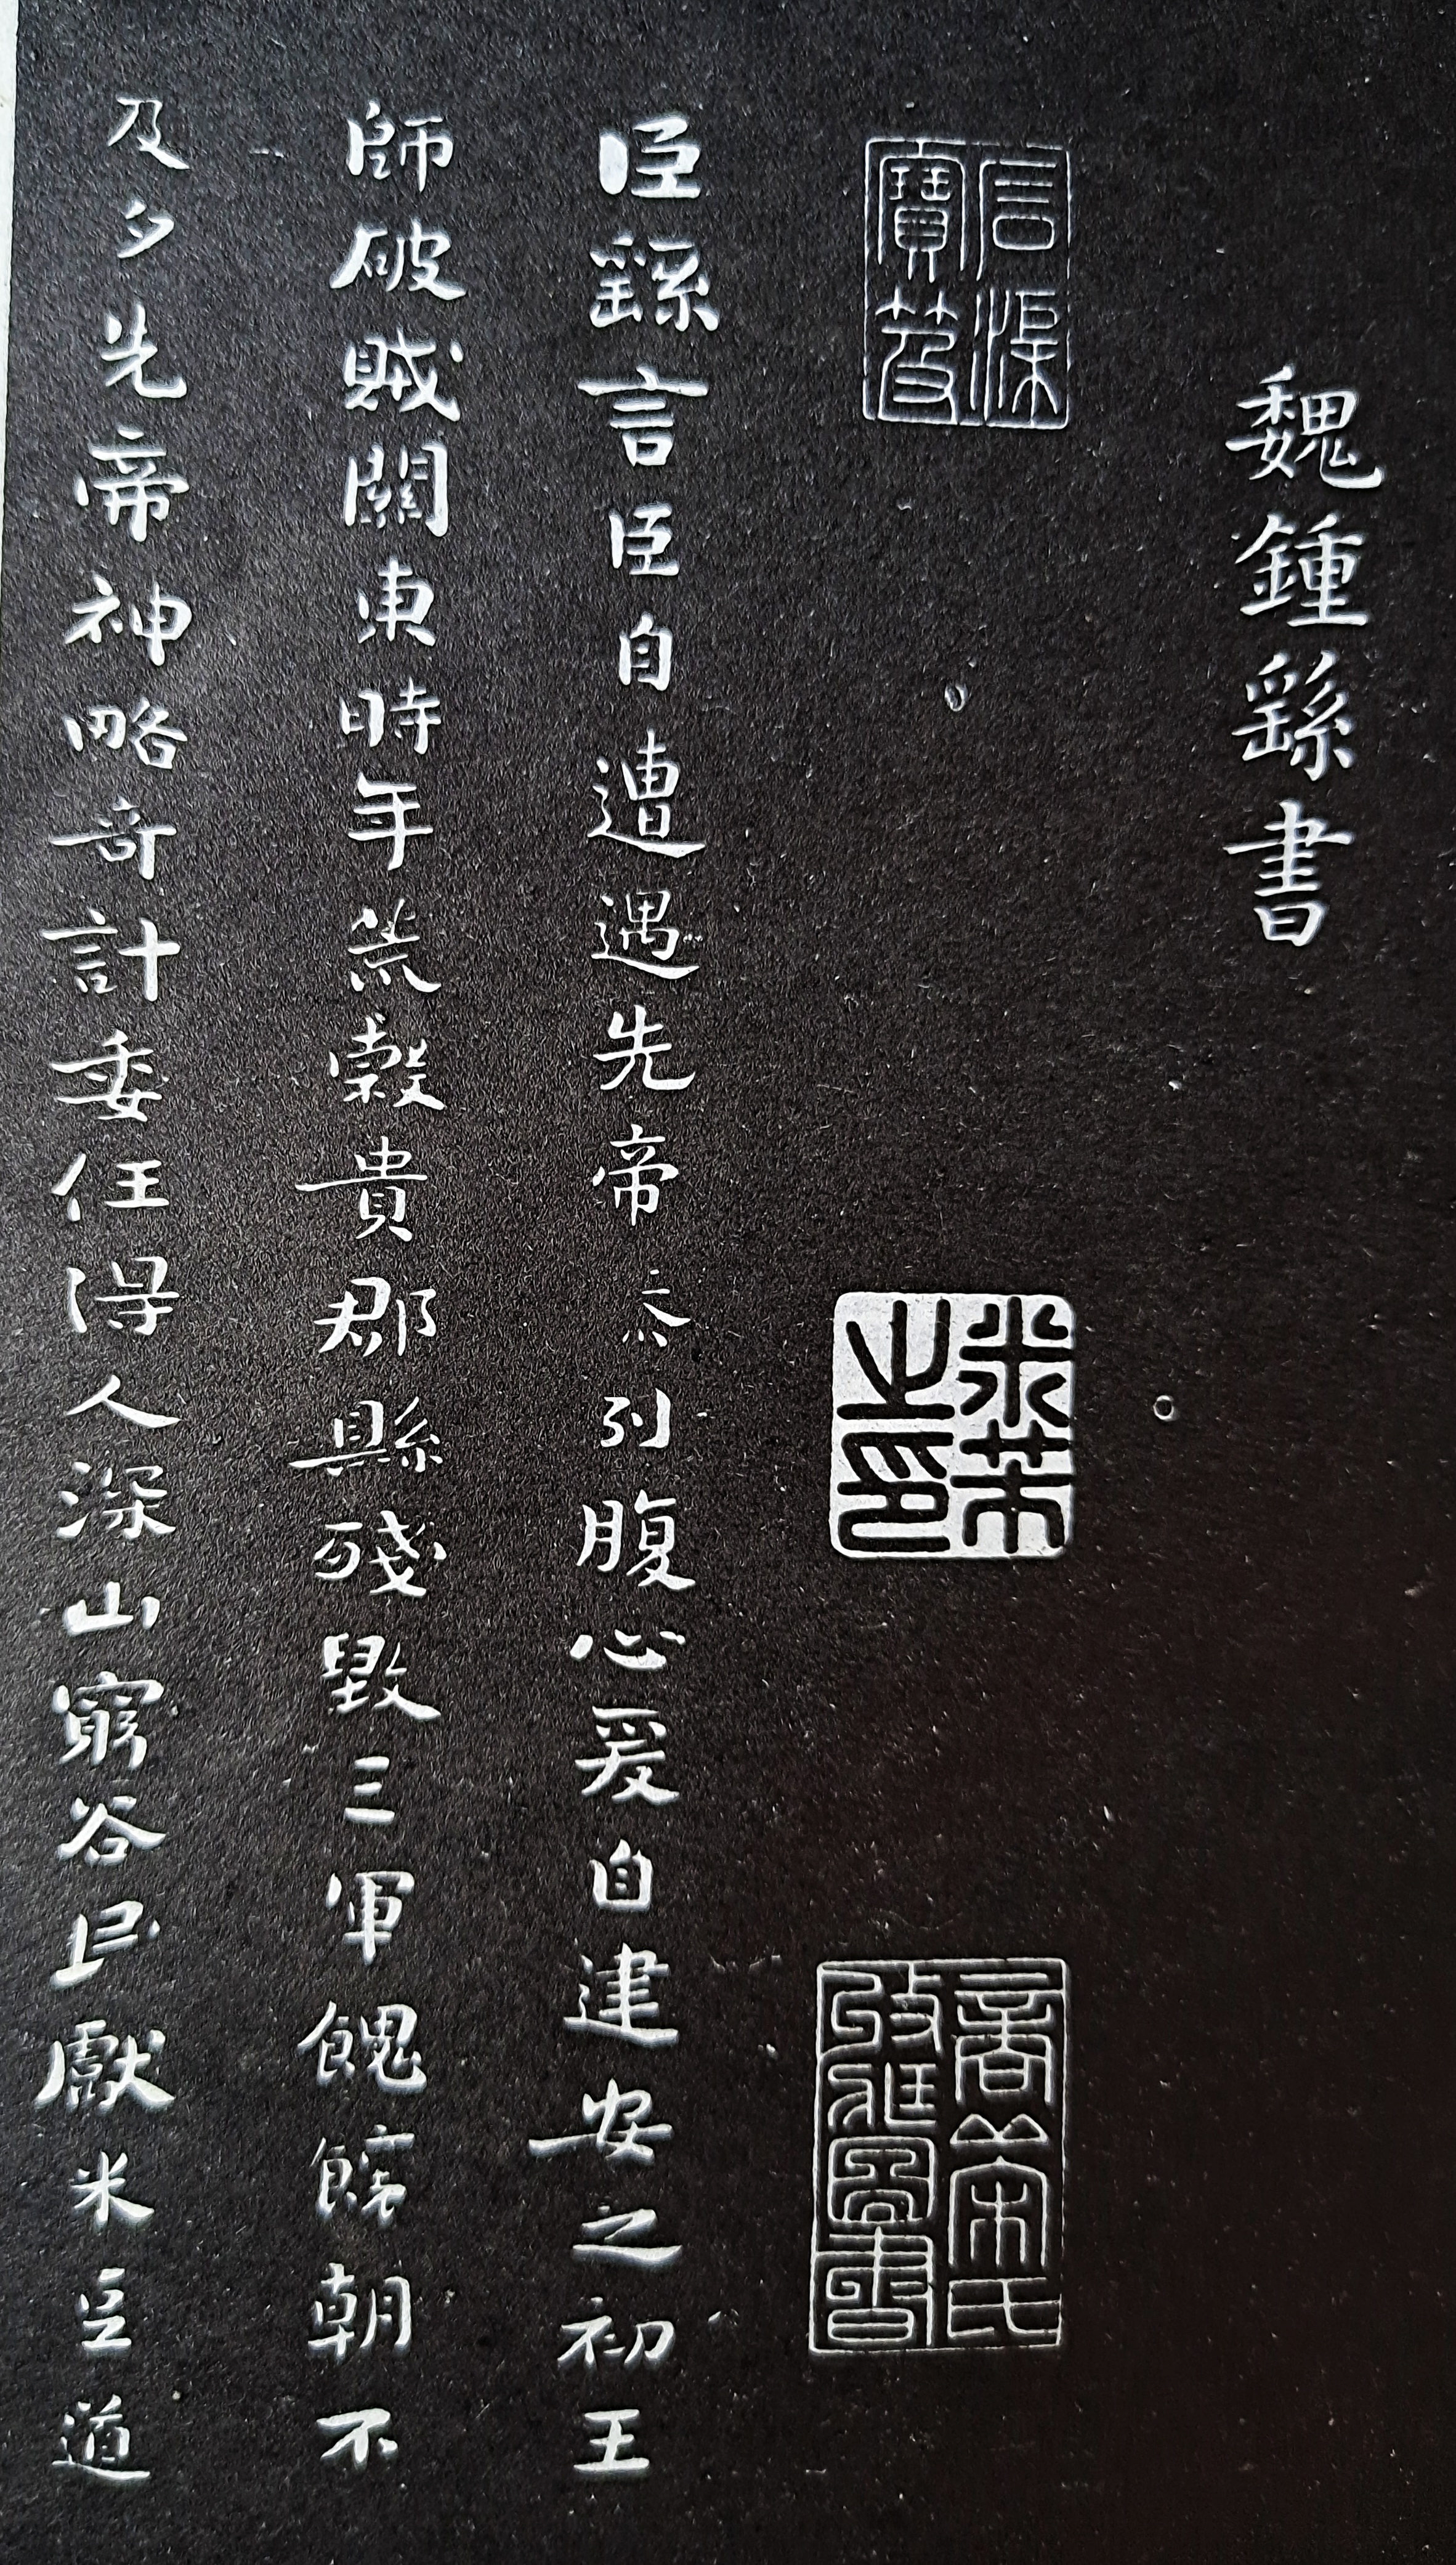 魏鍾繇書
臣繇言臣自遭遇先帝忝列腹心爰自建安之初王
師破賊關東時年荒穀貴郡縣殘毀三軍餽饟朝不
及夕先帝神略奇計委任得人深山窮谷民獻米豆道
米芾之印